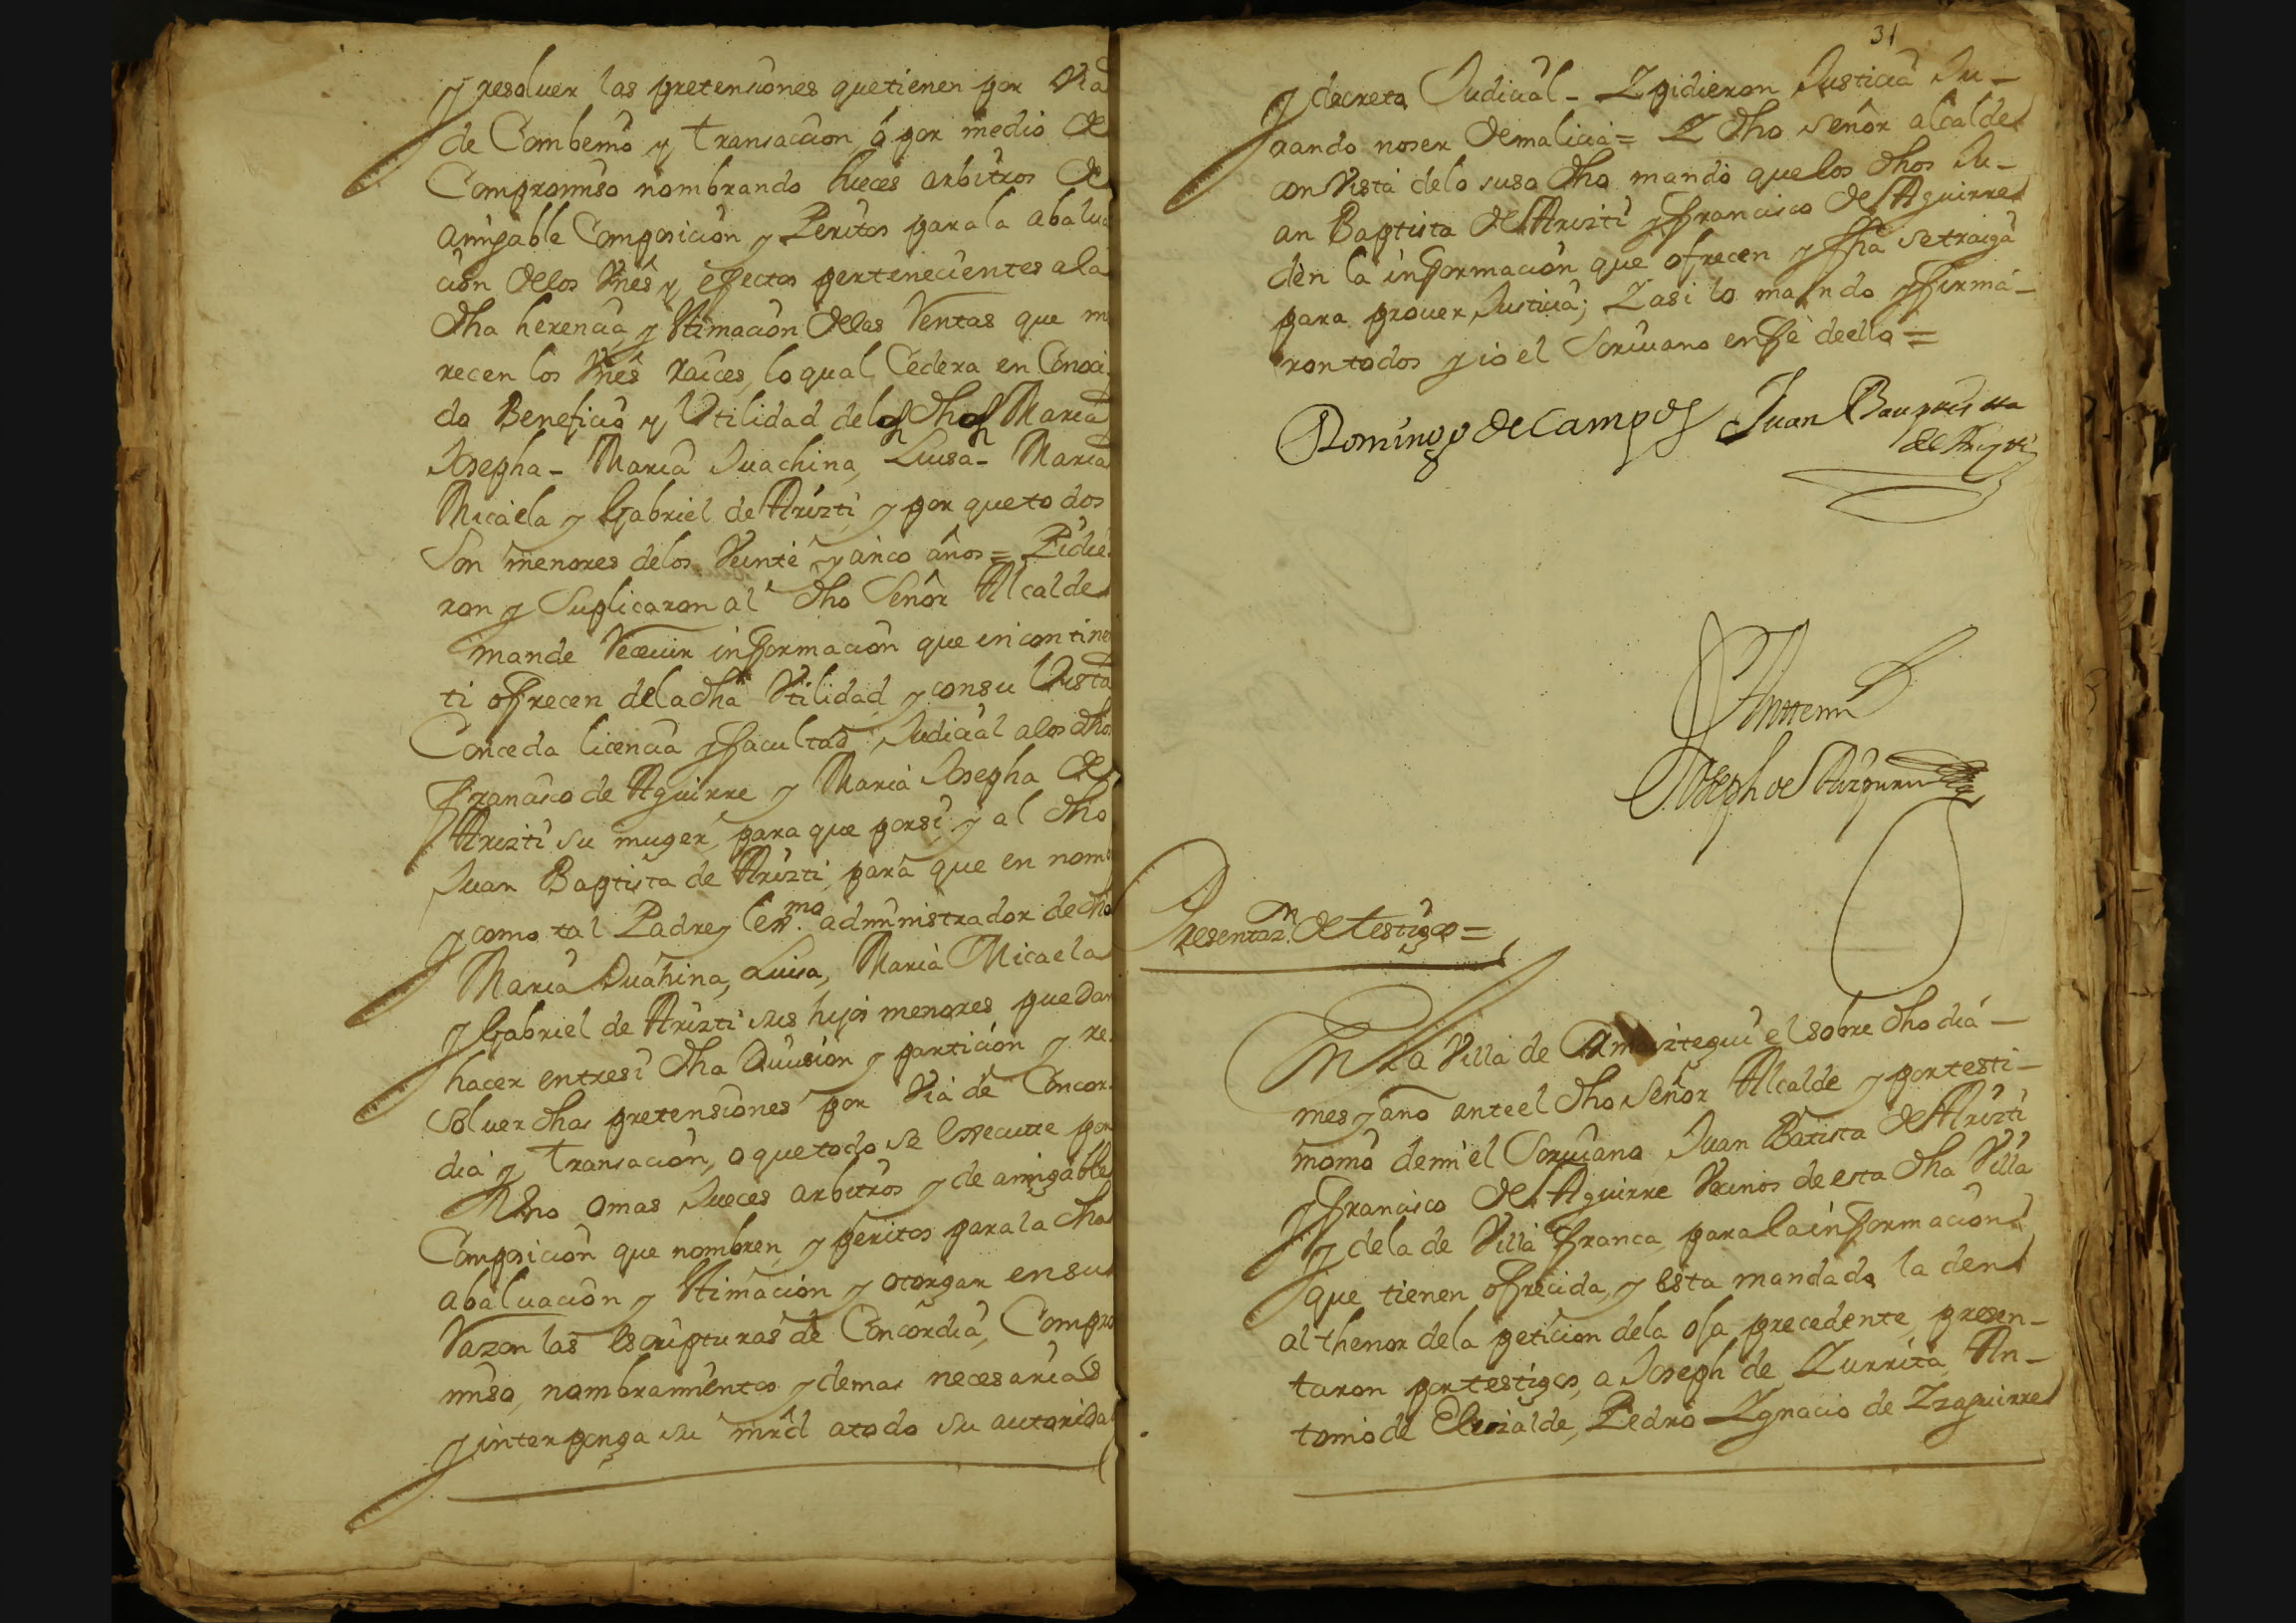 y resolver las pretensiones quetienen por via
de Combenio y transacion, o por medio de
Compromiso nombrando Jueces arbitros de
amigable Composicion y Peritos parala abalua
cion delos Vnes y efectos pertenecientes ala
dha herencia, y Stimacion delas Ventas que me
recen los Vnes raices, lo qual Cedera en Conoci
do Beneficio y Vtilidad delos dhos Maria
Josepha - Maria Juachina, Luisa - Maria
Micaela y Gabriel de Arizti, y por quetodos
Son menores delos Veinte y cinco años = Pidie
ron y Suplicaron al dho Señor Alcalde
mande Receuir informacion que incontine
ti ofrecen deladha Vtilidad, y consu Vista
Conceda licencia y facultad Judicial alos dhos
Francisco de Aguirre y Maria Josepha de
Arizti su muger, para que porsi, y al dho
Juan Baptista de Arizti, para que en nome
y como tal Padre y lexmo. administrador de dhos
Maria Juahina, Luisa, Maria Micaela
y Gabriel de Arizti sus hijos menores, puedan
hacer entresi dha Diuision y particion y re
soluer dhas pretensiones por Via de Concor
dia y transacion, o quetodo se execute por
Vno omas Jueces arbitros y de amigable
Composicion que nombren, y peritos parala dha
abaluacion y Stimacion y otorgan ensu
Razon las escripturas de Concordia, Compro
miso, nombramientos y demas necesarias
y interponga su mrd atodo su autorida
31
y decreto Judicial - Y pidieron Justicia Ju-
rando noser demalicia = Y dho señor alcalde
con Vista delo suso dho mandò quelos dhos Ju-
an Baptista de Arizti y francisco de Aguirre
dèn la informacion que ofrecen y fha setraiga
para prouer Justicia; Y asi lo mando y firma-
ron todos y io el Scriuano enfe deello =
Domingo de Campos Juan Bauptista
de Arizti
Antemi
Joseph de
Presentazn. de testigos =
En la Villa de Amezteguì el sobre dho dia -
mes y año anteel dho Señor Alcalde y portesti-
monio demi el Scriuano Juan Batista de Arizti
y francisco de Aguirre Vecinos de esta dha Villa
y dela de Villa franca, para la informacion
que tienen ofrecida, y esta mandado la den
al thenor dela peticion dela oja precedente, presen-
taron portestigos, a Joseph de Zurrita, An-
tonio de Elizalde, Pedro Ygnacio de Yzaguirre